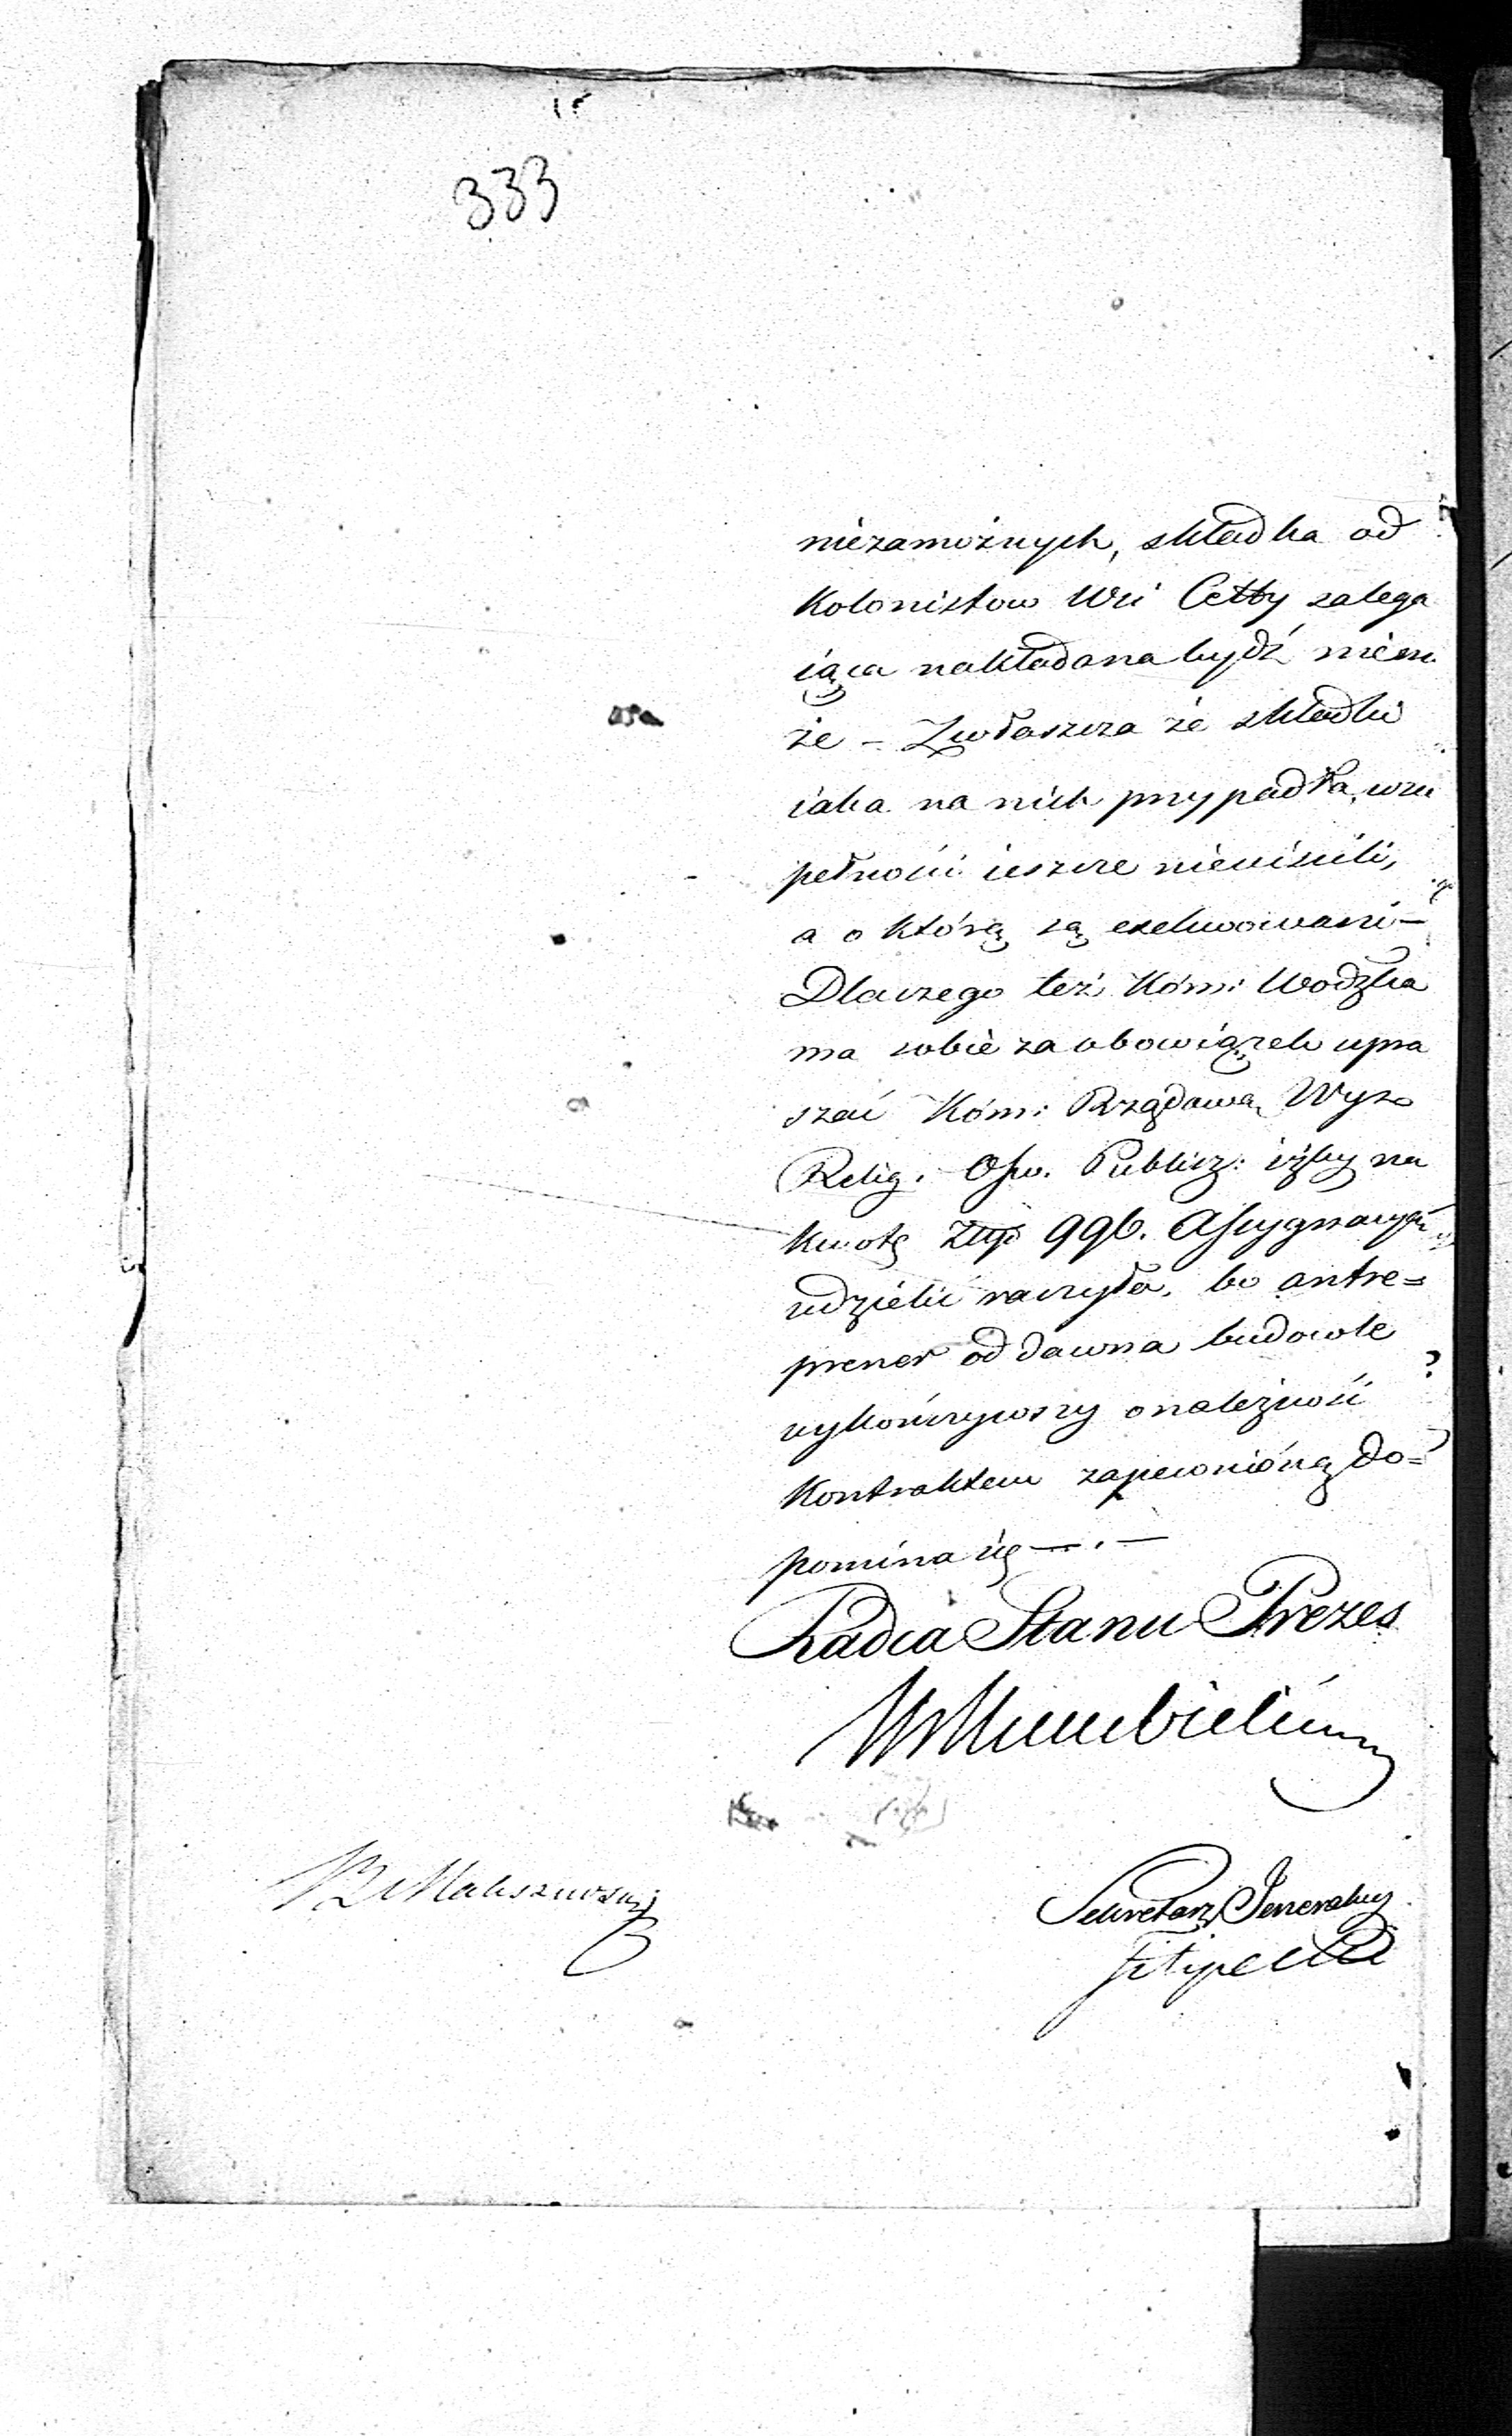 333
niezamożnych, składka od
Kolonistow Wsi Cetty zalega
iąca nakładana bydź niemo
że – Zwłaszcza że składki
iaka na nich przypadła, wzu
pełności ieszcze nieuiścili,
a o którą są exekwowani –
Dlaczego też Kom: Wodzka
ma sobie za obowiązek upra
szać Kom: Rządową Wyzn
Relig. Ośw. Publicz: iżby na
kwotę Złp 996. Assygnacyą
udzielić raczyła, bo antre=
prener od dawna budowle
wykończywszy o należność
Kontraktem zapewnióną do=
pomina się — . —
Radca Stanu Prezes
Sekretarz Jeneralny
Filipecki